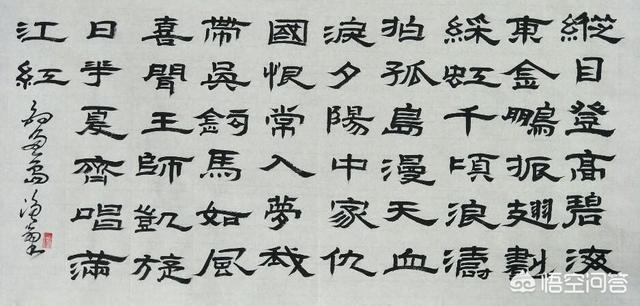 縱目登高碧海
東金鵬振翅劃
綵虹千頃浪濤
拍孤島漫天血
淚夕陽中家仇
國恨常入夢我
帶吳鉤馬如風
喜聞王師凱旋
日華夏齊唱滿
江紅
悟空问答